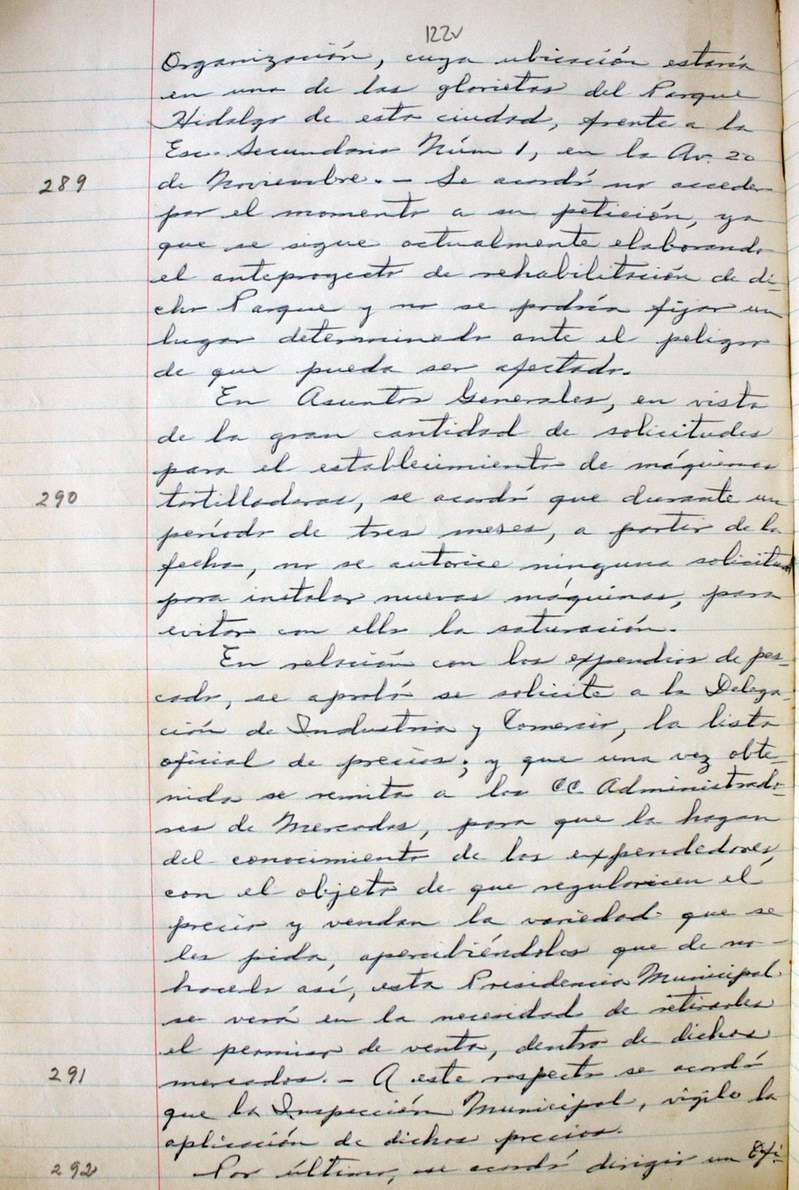 122v
Organización, cuya ubicación estaría
en una de las glorietas del Parque
Hidalgo de esta ciudad, frente a la
Esc. Secundaria Núm 1, en la Av. 20
289 de Noviembre. - Se acordó no acceder
por el momento a su petición, ya
que se sigue actualmente elaborando
el anteproyecto de rehabilitación de di-
cho Parque y no se podría fijar un
lugar determinado ante el peligro
de que pueda ser afectado.
En Asuntos Generales, en vista
de la gran cantidad de solicitudes
para el establecimiento de máquinas
290 tortilladoras, se acordó que durante un
período de tres meses, a partir de la
fecha, no se autorice ninguna solicitud
para instalar nuevas máquinas, para
evitar con ello la saturación.
En relación con los expendios de pes-
cado, se aprobó se solicite a la Delega-
ción de Industria y Comercio, la lista
oficial de precios; y que una vez obte-
nida se remita a los CC Administrado-
res de Mercados, para que la hagan
del conocimiento de los expendedores,
con el objeto de que regularicen el
precio y vendan la variedad que se
les pida, apercibiéndoles que de no -
hacerlo así, esta Presidencia Municipal
se verá en la necesidad de retirarles
el permiso de venta, dentro de dichos
291 mercados. - A este respecto se acordó
que la Inspección Municipal, vigile la
aplicación de dichos precios.
292 Por último, se acordó dirigir un Ofi-